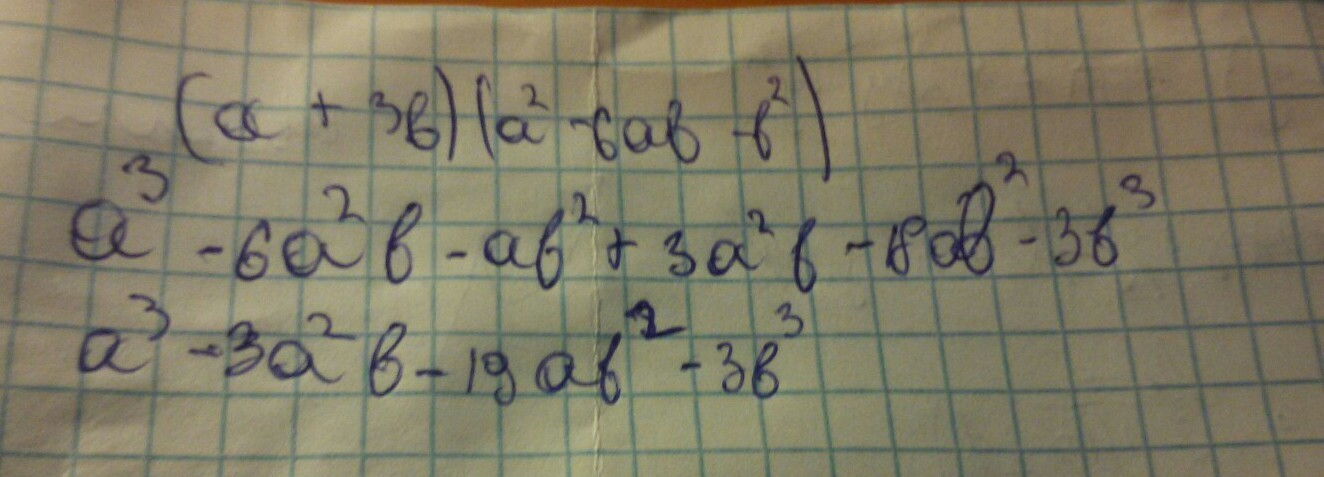 (a + 3b)(a² - 6ab - b²)
a³ - 6a²b - ab² + 3a²b - 18ab² - 3b³
a³ - 3a²b - 19ab² - 3b³